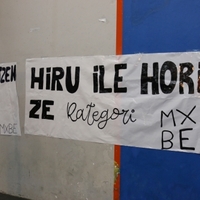 ZEN
HIRU ILE HORI
ZE kategori
MXBE
MX
BE